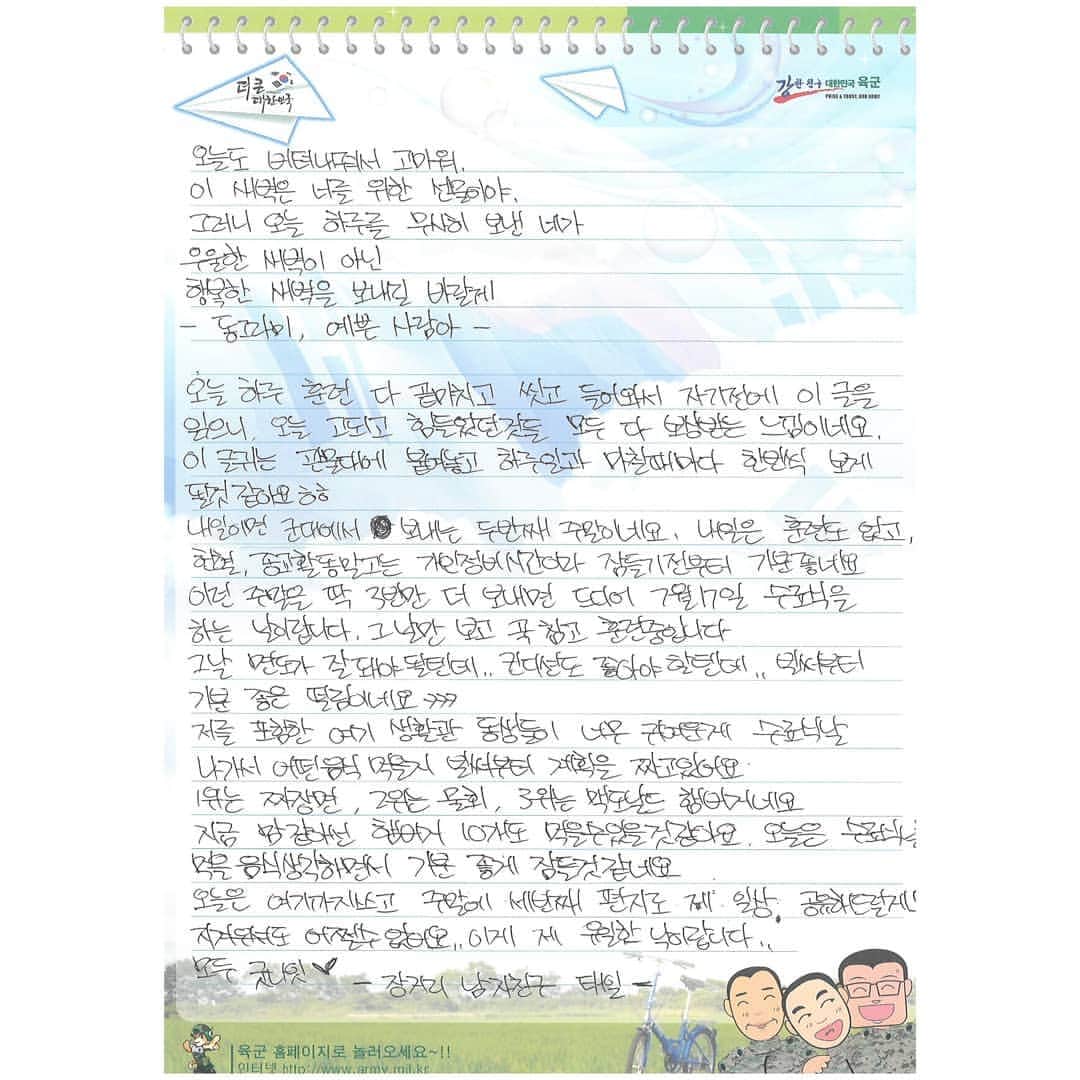 더 큰
대한민국
강한친구 대한민국 육군
PRIDE & TRUST, OUR ARMY
오늘도 버텨내줘서 고마워,
이 새벽은 너를 위한 선물이야.
그러니 오늘 하루를 무사히 보낸 네가
우울한 새벽이 아닌
행복한 새벽을 보내길 바랄게
- 동그라미, 예쁜 사람아 -
오늘 하루 훈련 다 끝마치고 씻고 들어와서 자기전에 이 글을
읽으니, 오늘 고되고 힘들었던것들 모두 다 보상받는 느낌이네요.
이 글귀는 관물대에 붙여놓고 하루일과 마칠때마다 한번씩 보게
될것 같아요 ㅎㅎ
내일이면 군대에서 보내는 두번째 주말이네요. 내일은 훈련도 없고,
헌혈, 종교활동말고는 개인정비시간이라 잠들기전부터 기분 좋네요
이런 주말을 딱 3번만 더 보내면 드디어 7월17일 수료식을
하는 날이랍니다. 그 날만 보고 꾹 참고 훈련중입니다
그날 면도가 잘 돼야 될텐데.. 컨디션도 좋아야 할텐데.. 벌써부터
기분 좋은 떨림이네요
저를 포함한 여기 생활관 동생들이 너무 귀여운게 수료식날
나가서 어떤음식 먹을지 벌써부터 계획을 짜고있어요
1위는 짜장면, 2위는 물회, 3위는 맥도날드 햄버거네요
지금 맘 같아선 햄버거 10개도 먹을수있을것같아요. 오늘은 수료식날
먹을 음식생각하면서 기분 좋게 잠들것같네요
오늘은 여기까지쓰고 주말에 세번째 편지로 제 일상 공유하드릴게요
지겨워서도 어쩔수 없어요.. 이게 제 유일한 낙이랍니다..
모두 굿나잇 ♥
- 장거리 남자친구 태일 -
육군 홈페이지로 놀러오세요~!!
인터넷 http://www.army.mil.kr